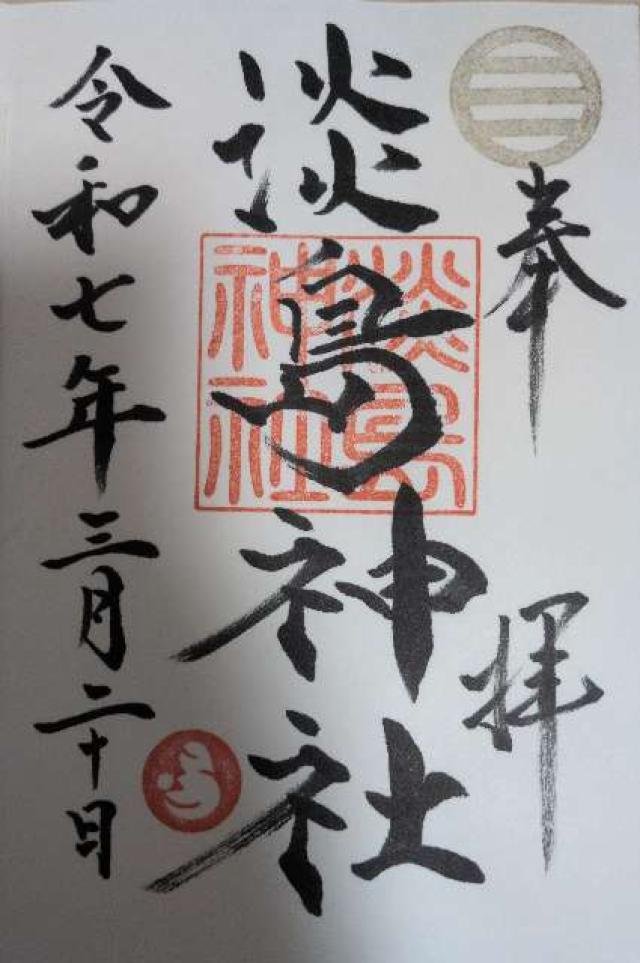 奉拝
淡島神社
淡島神社
令和七年三月二十日